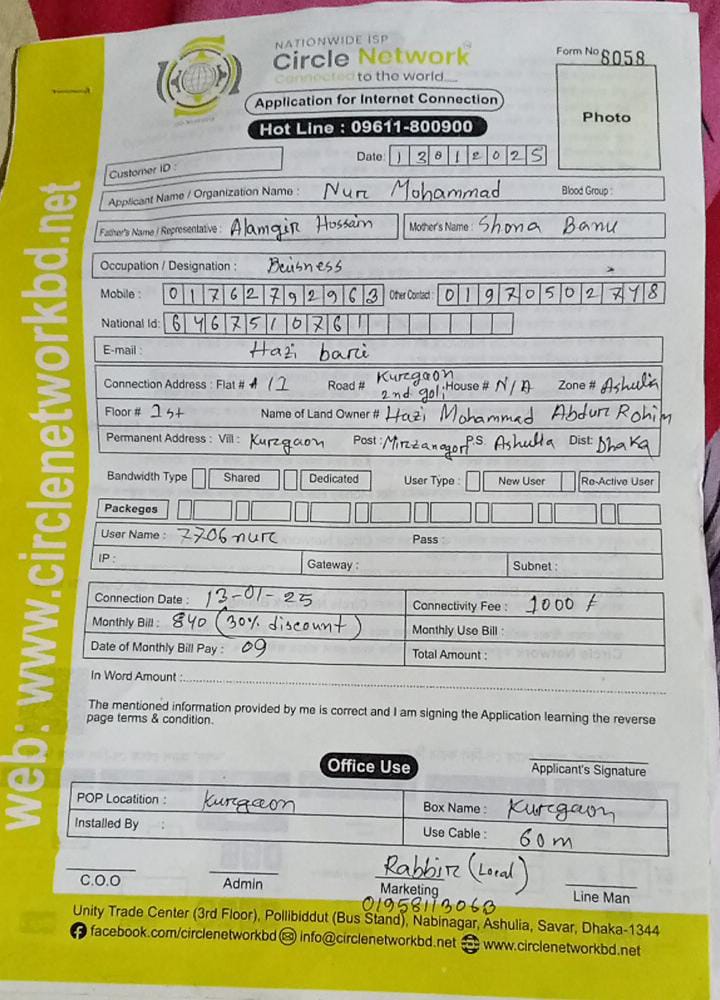 NATIONWIDE ISP
Circle Network
Connected to the world.....
Form No 8058
Application for Internet Connection
Photo
Hot Line : 09611-800900
Date: 13012025
Customer ID :
Applicant Name / Organization Name : Nur Mohammad Blood Group :
Father's Name / Representative : Alamgir Hossain Mother's Name : Shona Banu
Occupation / Designation : Beusness
Mobile : 01762792963 Other Contact : 01970502748
National Id: 6467510761
E-mail : Hazi bari
Connection Address : Flat # A /1 Road # Kurgaon 2nd goli House # N/A Zone # Ashulia
Floor # 1st Name of Land Owner # Hazi Mohammad Abdur Rohim
Permanent Address : Vill : Kurgaon Post : Mirzanagor P.S. Ashulia Dist: Dhaka
Bandwidth Type Shared Dedicated User Type : New User Re-Active User
Packeges
User Name : 7706nur Pass :
IP : Gateway : Subnet :
Connection Date : 13-01-25 Connectivity Fee : 1000 /
Monthly Bill : 840 (30% discount) Monthly Use Bill :
Date of Monthly Bill Pay : 09 Total Amount :
In Word Amount :
The mentioned information provided by me is correct and I am signing the Application learning the reverse
page terms & condition.
Office Use
Applicant's Signature
POP Locatition : Kurgaon Box Name : Kurgaon
Installed By : Use Cable : 60m
Rabbir (Local)
C.O.O Admin Marketing Line Man
01958113063
Unity Trade Center (3rd Floor), Pollibiddut (Bus Stand), Nabinagar, Ashulia, Savar, Dhaka-1344
facebook.com/circlenetworkbd info@circlenetworkbd.net www.circlenetworkbd.net
web: www.circlenetworkbd.net